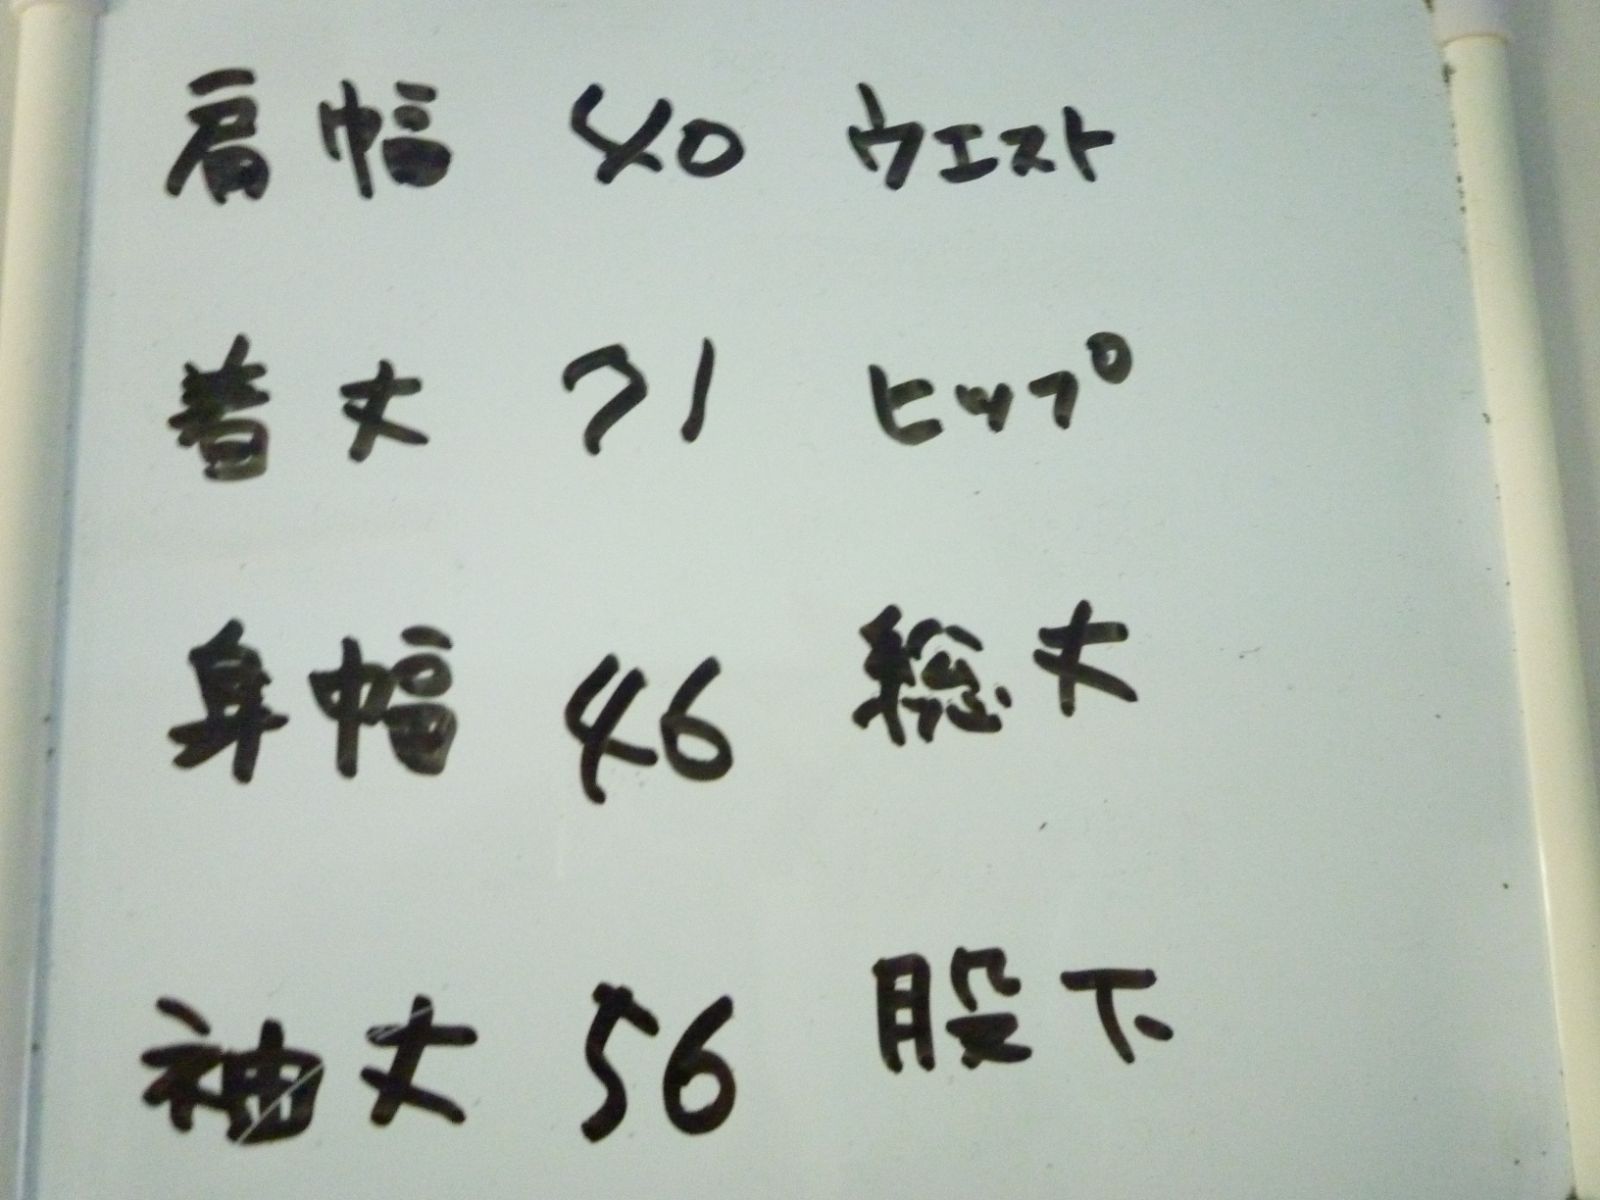 肩幅 40 ウエスト
着丈 71 ヒップ
身幅 46 総丈
袖丈 56 股下